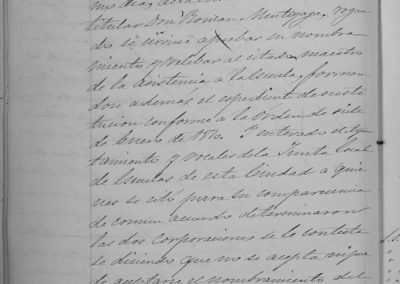 titular Don Roman Mentxaca, rogan
do se sirviese aprobar su nombra
miento y relebar al citado maestro
de la asistencia a la Escuela, forman
dose ademas el espediente de susti
tucion conforme a la orden de siete
de Enero de 1870. Enterado el Ayun
tamiento y vocales de la Junta local
de Escuelas de esta Ciudad a quie
nes se citó para su comparecencia
de comun acuerdo determinaron
las dos corporaciones se le contesta
se diciendo que no se acepta
el nombramiento del